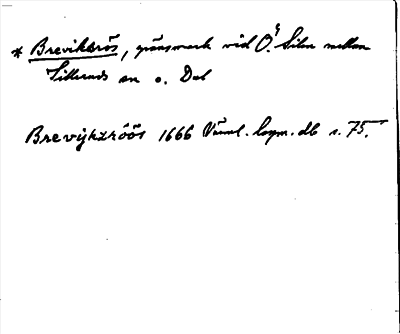 * Breviksrös, gränsmark vid Ö. Silen mellan
Sillerud sn o. Dal
Brevijkzröös 1666 Värml. lagm. db s. 75.